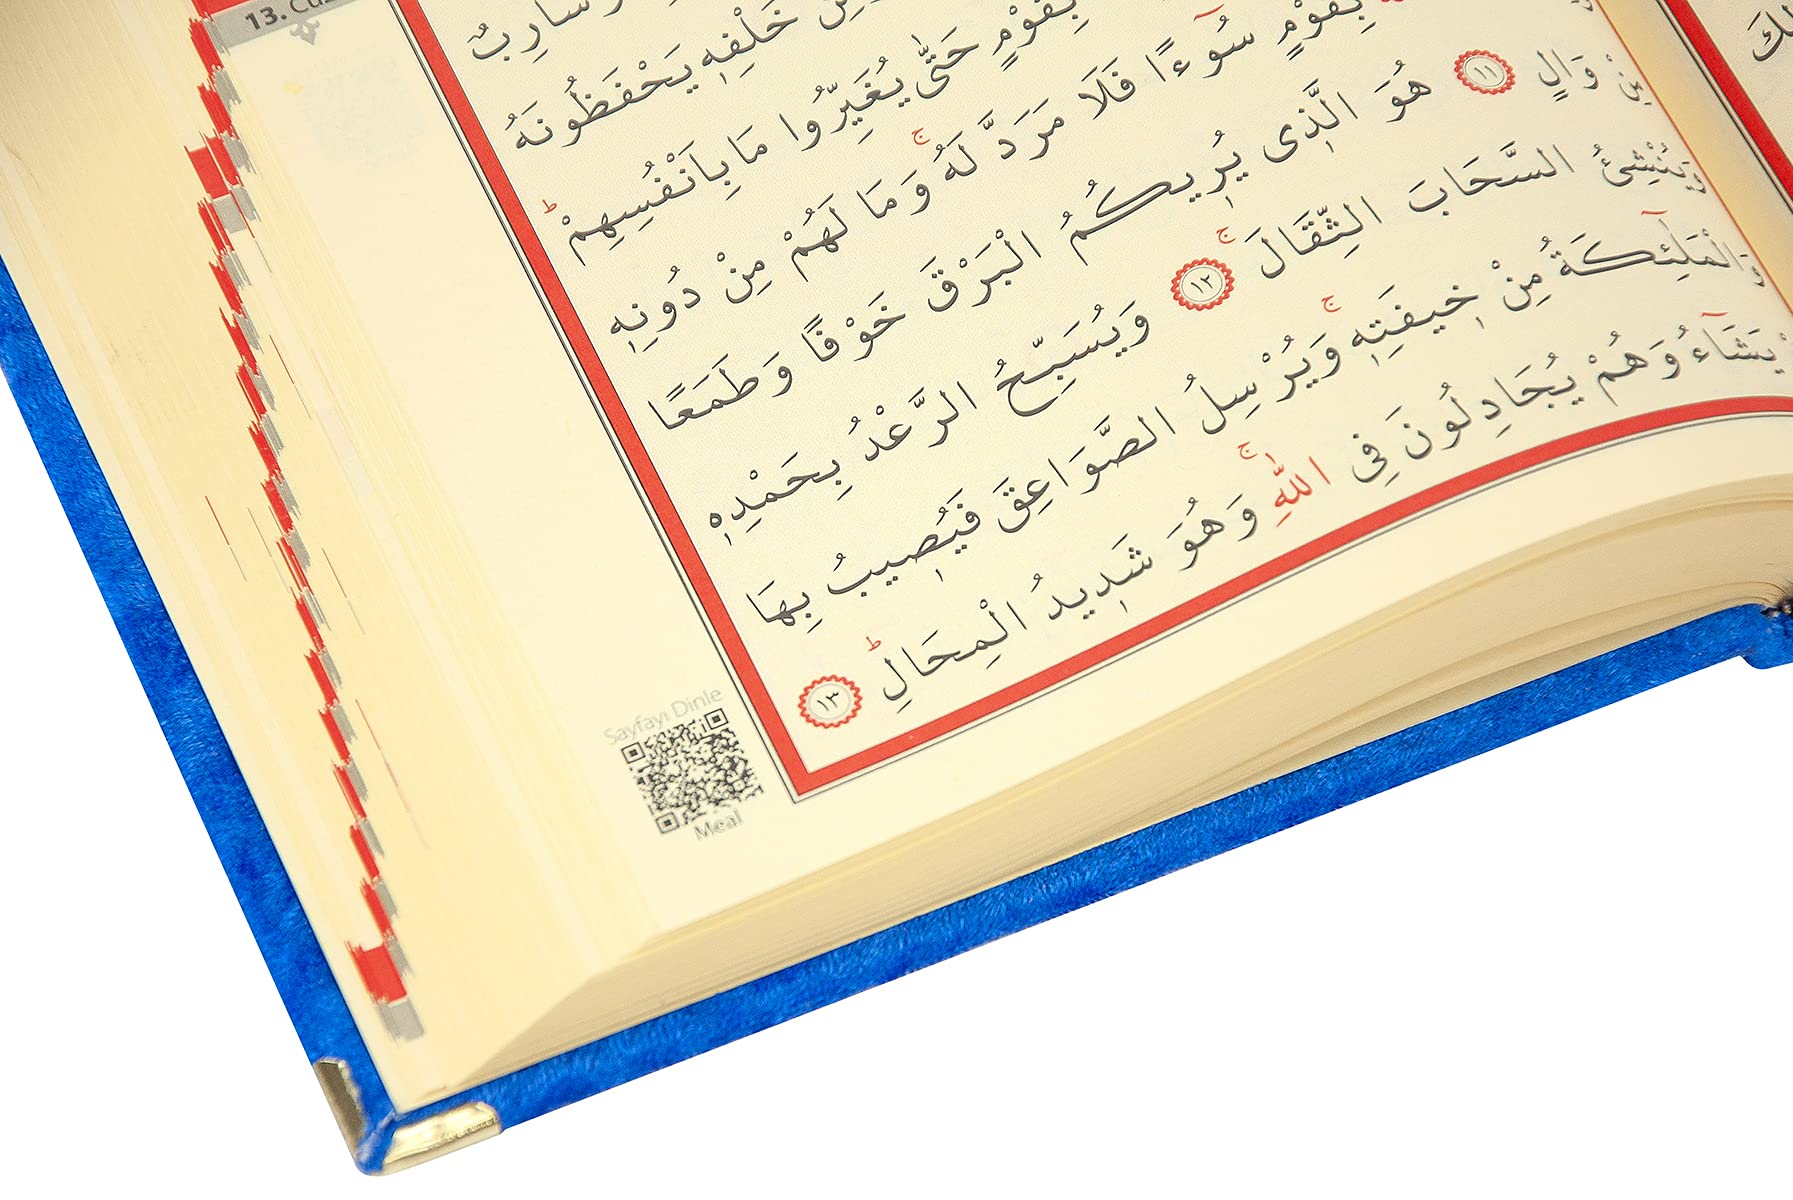 13. Cüz
وَسَارِبٌ
خَلْفِهٖ يَحْفَظُونَهُ
بِقَوْمٍ حَتّٰى يُغَيِّرُوا مَا بِاَنْفُسِهِمْ ط
بِقَوْمٍ سُوٓءًا فَلَا مَرَدَّ لَهُ ج وَمَا لَهُمْ مِنْ دُونِهٖ
مِنْ وَالٍ ١١ هُوَ الَّذٖى يُرٖيكُمُ الْبَرْقَ خَوْفًا وَطَمَعًا
وَيُنْشِئُ السَّحَابَ الثِّقَالَ ج ١٢ وَيُسَبِّحُ الرَّعْدُ بِحَمْدِهٖ
وَالْمَلٰٓئِكَةُ مِنْ خٖيفَتِهٖ ج وَيُرْسِلُ الصَّوَاعِقَ فَيُصٖيبُ بِهَا
يَشَٓاءُ وَهُمْ يُجَادِلُونَ فِى اللّٰهِ ج وَهُوَ شَدٖيدُ الْمِحَالِ ط ١٣
Sayfayı Dinle
Meal